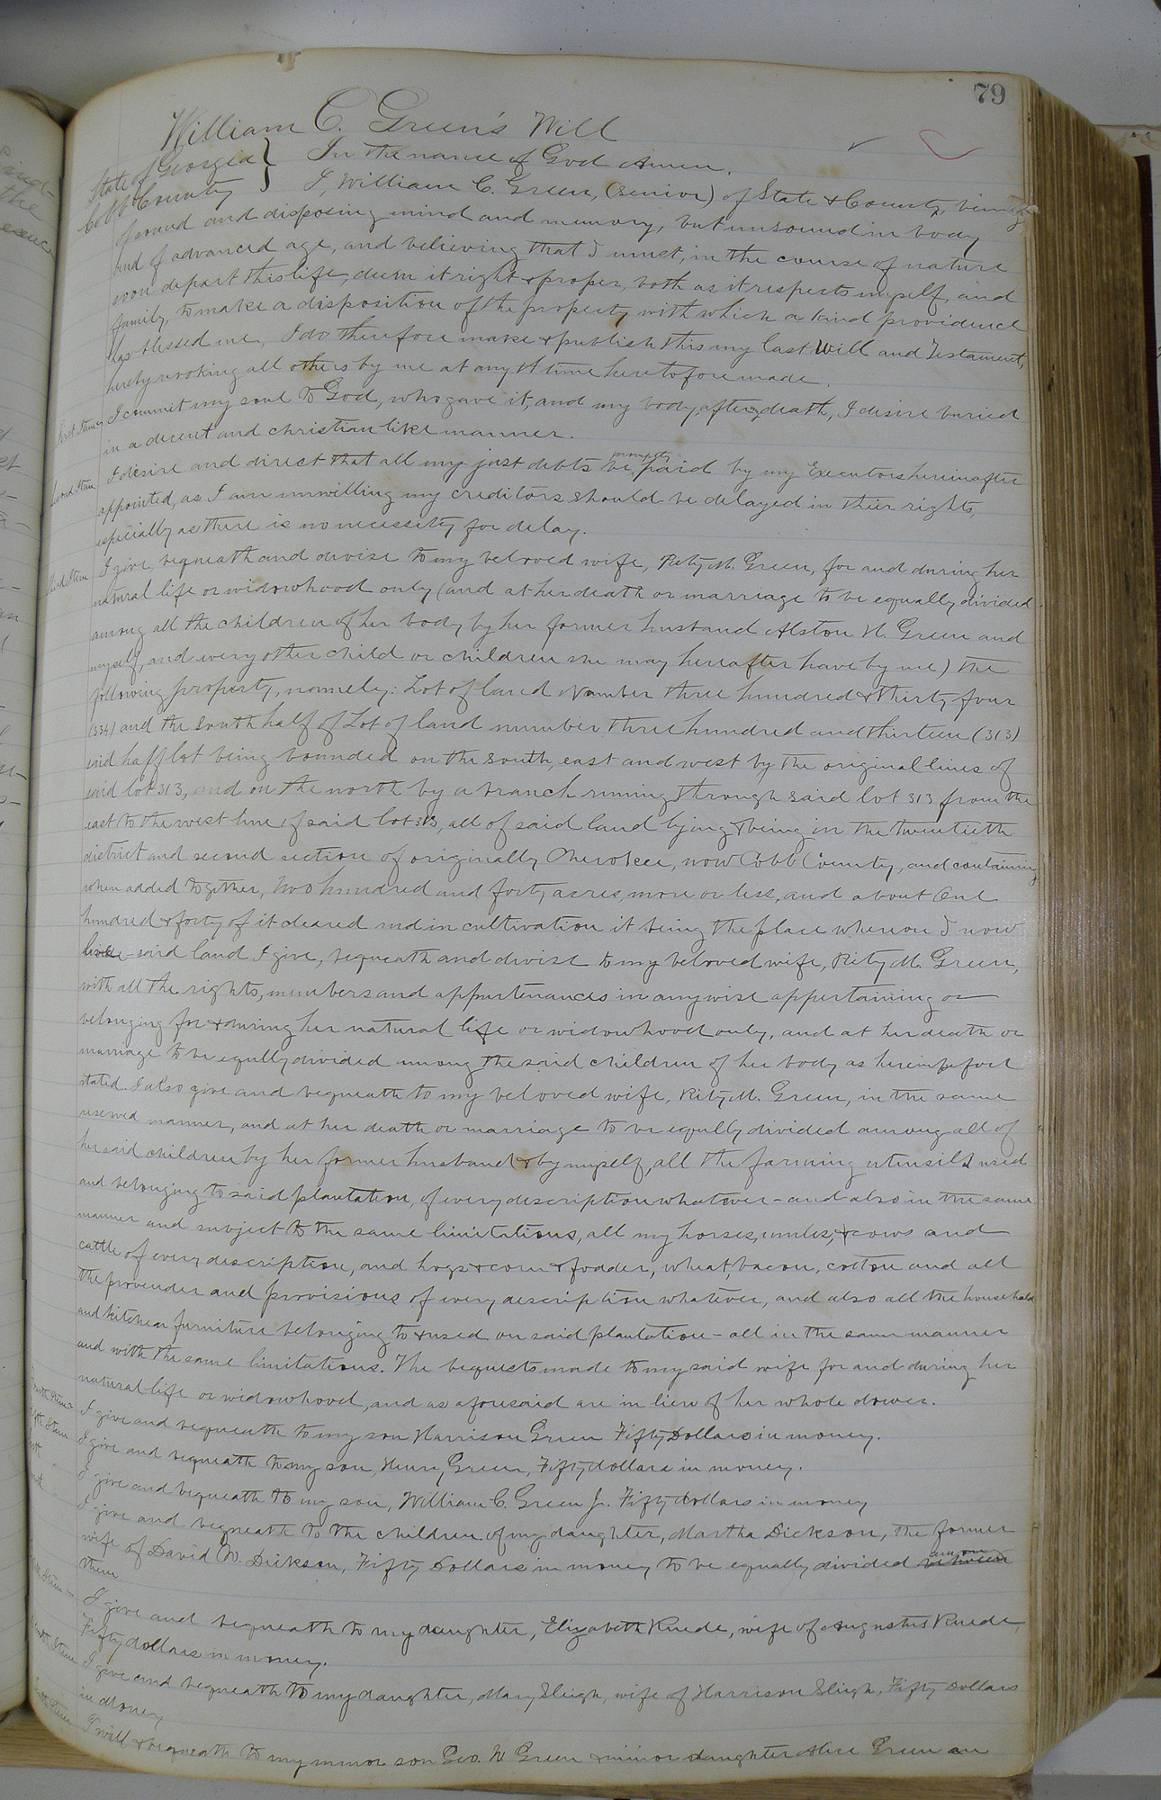 79
William C. Green's Will
State of Georgia } In the name of God Amen.
Cobb County } I, William C. Green, (Senior) of State & County, being
of sound and disposing mind and memory, but unsound in body
and of advanced age, and believing that I must, in the course of nature
soon depart this life, deem it right & proper, both as it respects myself, and
family, to make a disposition of the property with which a kind providence
has blessed me, I do therefore make & publish this my last Will and Testament,
hereby revoking all others by me at any time heretofore made.
First Item I commit my soul to God, who gave it, and my body, after death, I desire buried
in a decent and christian like manner.
Second Item I desire and direct that all my just debts be promptly paid by my Executors hereinafter
appointed, as I am unwilling my creditors should be delayed in their rights,
especially as there is no necessity for delay.
Third Item I give, bequeath and devise to my beloved wife, Rity M. Green, for and during her
natural life or widowhood only (and at her death or marriage to be equally divided
among all the children of her body by her former husband Alston H. Green and
myself, and every other child or children she may hereafter have by me) the
following property, namely: Lot of land Number three hundred & thirty four
(334) and the South half of Lot of land number three hundred and thirteen (313)
said half lot being bounded on the south, east and west by the original lines of
said lot 313, and on the north by a branch running through said lot 313 from the
east to the west line of said lot 313, all of said land lying & being in the twentieth
district and second section of originally Cherokee, now Cobb County, and containing
when added together, two hundred and forty acres, more or less, and about One
hundred & forty of it cleared and in cultivation it being the place whereon I now
live - said land I give, bequeath and devise to my beloved wife, Rity M. Green,
with all the rights, members and appurtenances in anywise appertaining or
belonging for & during her natural life or widowhood only, and at her death or
marriage to be eqully divided among the said children of her body as hereinbefore
stated. I also give and bequeath to my beloved wife, Rity M. Green, in the same
reserved manner, and at her death or marriage to be eqully divided among all of
her said children by her former husband & by myself, all the farming utensils used
and belonging to said plantation, of every description whatever - and also in the same
manner and subject to the same limitations, all my horses, mules, & cows and
cattle of every description, and hogs & corn & fodder, wheat, bacon, cotton and all
the provender and provisions of every description whatever, and also all the household
and kitchen furniture belonging to & used on said plantation - all in the same manner
and with the same limitations. The bequests made to my said wife for and during her
natural life or widowhood, and as aforesaid are in lieu of her whole dower.
I give and bequeath to my son Harrison Green Fifty Dollars in money.
I give and bequeath to my son, Henry Green, Fifty dollars in money.
I give and bequeath to my son, William C. Green Jr. Fifty dollars in money
I give and bequeath to the children of my daughter, Martha Dickson, the former
wife of David W. Dickson, Fifty Dollars in money to be equally divided among
them
I give and bequeath to my daughter, Elizabeth Ruede, wife of Augustus Ruede,
Fifty dollars in money.
I give and bequeath to my daughter, Mary Sleigh, wife of Harrison Sleigh, Fifty Dollars
in money
I will & bequeath to my minor son Geo. W Green & minor daughter Alice Green an